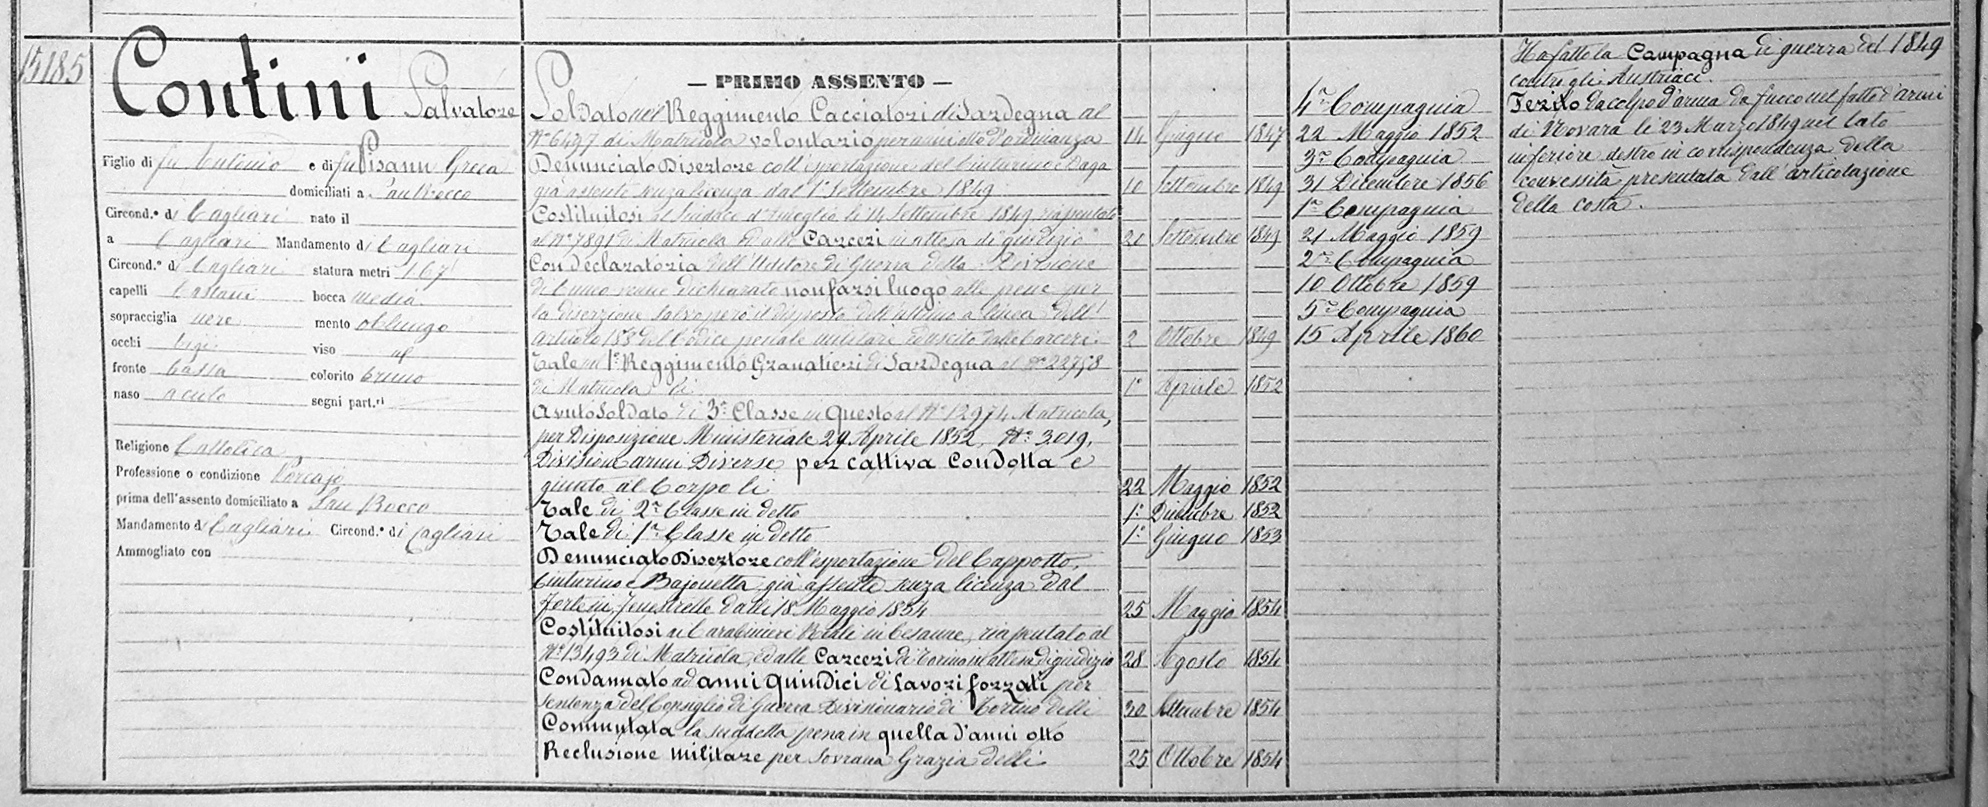 15185
Contini Salvatore
Figlio di fu Antonio e di fu Pisanu Greca
domiciliati a San Rocco
Circond.º di Cagliari nato il
a Cagliari Mandamento di Cagliari
Circond.º di Cagliari statura metri 1.67
capelli Castani bocca media
sopracciglia nere mento oblungo
occhi bigi viso
fronte bassa colorito bruno
naso aculo segni part.ri
Religione Cattolica
Professione o condizione Porcajo
prima dell'assento domiciliato a San Rocco
Mandamento di Cagliari Circond.º di Cagliari
Ammogliato con
— PRIMO ASSENTO —
Soldato nel Reggimento Cacciatori di Sardegna al
Nº 6497 di Matricola volontario per anni otto d'ordinanza 14 Giugno 1847
Denunciato Disertore coll'esportazione del Cinturino e Daga
già assente senza licenza dal 1º Settembre 1849 10 Settembre 1849
Costituitosi al Sindaco d' li 14 Settembre 1849 riapuntato
al Nº 7891 di Matricola ed alle Carceri in attesa di giudizio 21 Settembre 1849
Con declaratoria dell'Uditore di Guerra della Divisione
di Cuneo venne dichiarato non farsi luogo alle pene per
la diserzione salvo però il disposto dell'ultimo alinea dell'
Articolo 153 del Codice penale militare ed uscito dalle Carceri 2 Ottobre 1849
Tale nel 1º Reggimento Granatieri di Sardegna al Nº 22758
di Matricola li 1º Aprile 1852
Avuto Soldato di 3ª Classe in Questo al Nº 12974 Matricola,
per Disposizione Ministeriale 29 Aprile 1852, Nº 3019,
Divisione armi Diverse per cattiva Condotta e
giunto al Corpo li 22 Maggio 1852
Tale di 2ª Classe in detto 1º Dicembre 1852
Tale di 1ª Classe in detto 1º Giugno 1853
Denunciato Disertore coll'esportazione del Cappotto,
Cinturino e Bajonetta già assente senza licenza dal
Forte di Fenestrelle dalli 18 Maggio 1854 25 Maggio 1854
Costituitosi ai Carabinieri Reali in Cesanne, riapuntato al
Nº 13493 di Matricola, ed alle Carceri di Torino in attesa di giudizio 28 Agosto 1854
Condannato ad anni quindici di Lavori forzati per
Sentenza del Consiglio di Guerra Divisionario di Torino delli 30 Settembre 1854
Commutata la suddetta pena in quella d'anni otto
Reclusione militare per Sovrana Grazia delli 25 Ottobre 1854
4ª Compagnia
22 Maggio 1852
3ª Compagnia
31 Dicembre 1856
1ª Compagnia
21 Maggio 1859
2ª Compagnia
10 Ottobre 1859
5ª Compagnia
15 Aprile 1860
Ha fatto la Campagna di guerra del 1849
contro gli Austriaci.
Ferito da colpo d'arma da fuoco nel fatto d'armi
di Novara li 23 Marzo 1849 nel lato
inferiore destro in corrispondenza della
convessità presentata dall'articolazione
della costa.